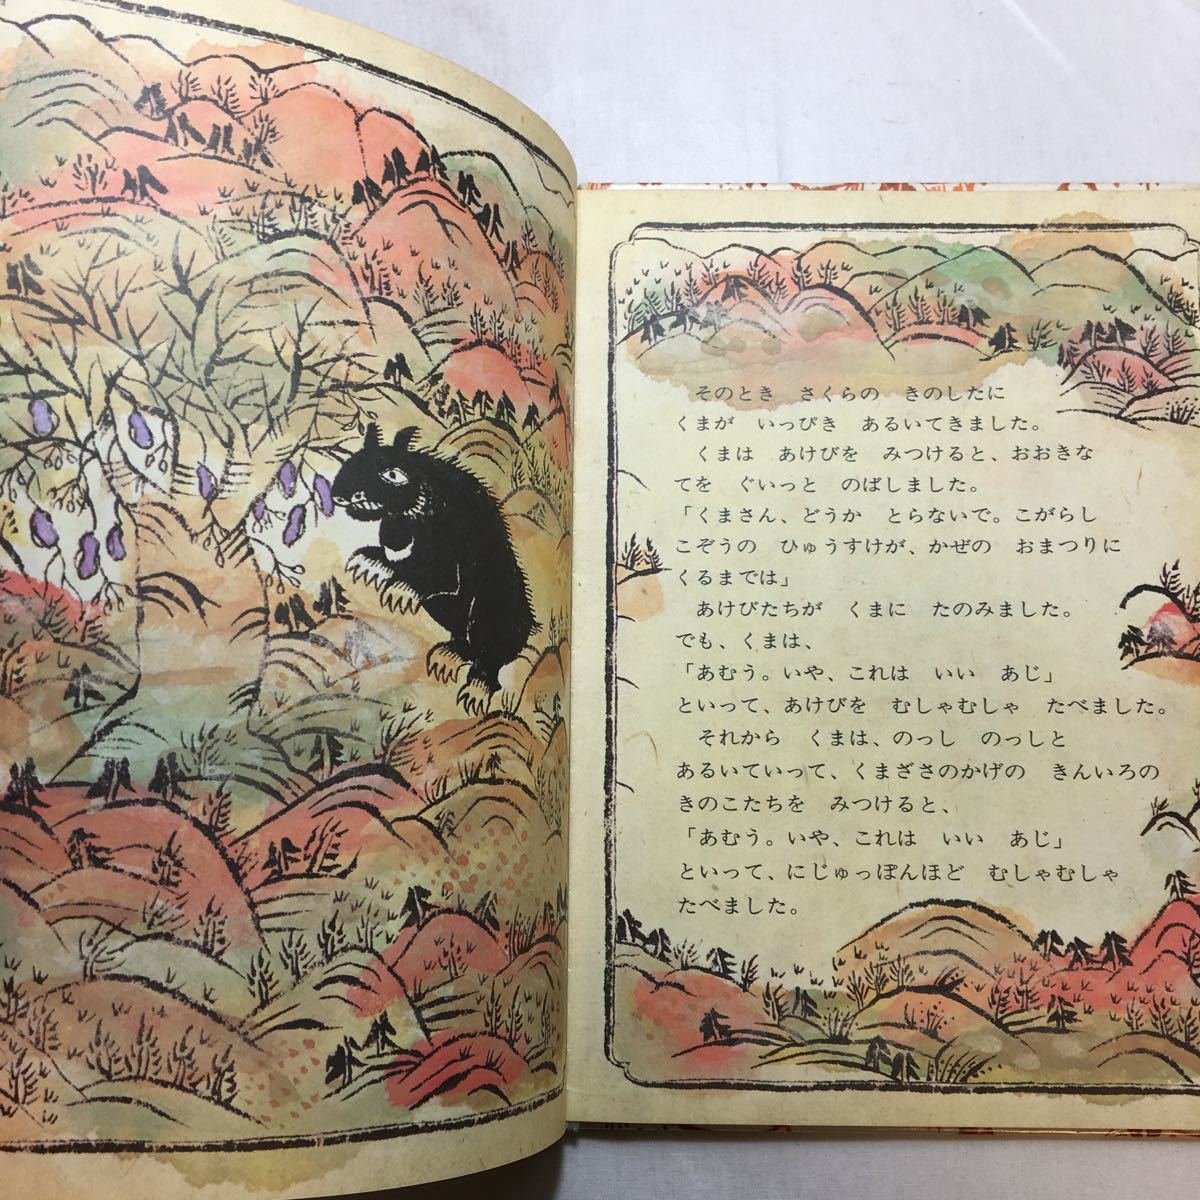 そのとき　さくらの　きのしたに
くまが　いっぴき　あるいてきました。
くまは　あけびを　みつけると、おおきな
てを　ぐいっと　のばしました。
「くまさん、どうか　とらないで。こがらし
こぞうの　ひゅうすけが、かぜの　おまつりに
くるまでは」
あけびたちが　くまに　たのみました。
でも、くまは、
「あむう。いや、これは　いい　あじ」
といって、あけびを　むしゃむしゃ　たべました。
それから　くまは、のっし　のっしと
あるいていって、くまざさのかげの　きんいろの
きのこたちを　みつけると、
「あむう。いや、これは　いい　あじ」
といって、にじゅっぽんほど　むしゃむしゃ
たべました。